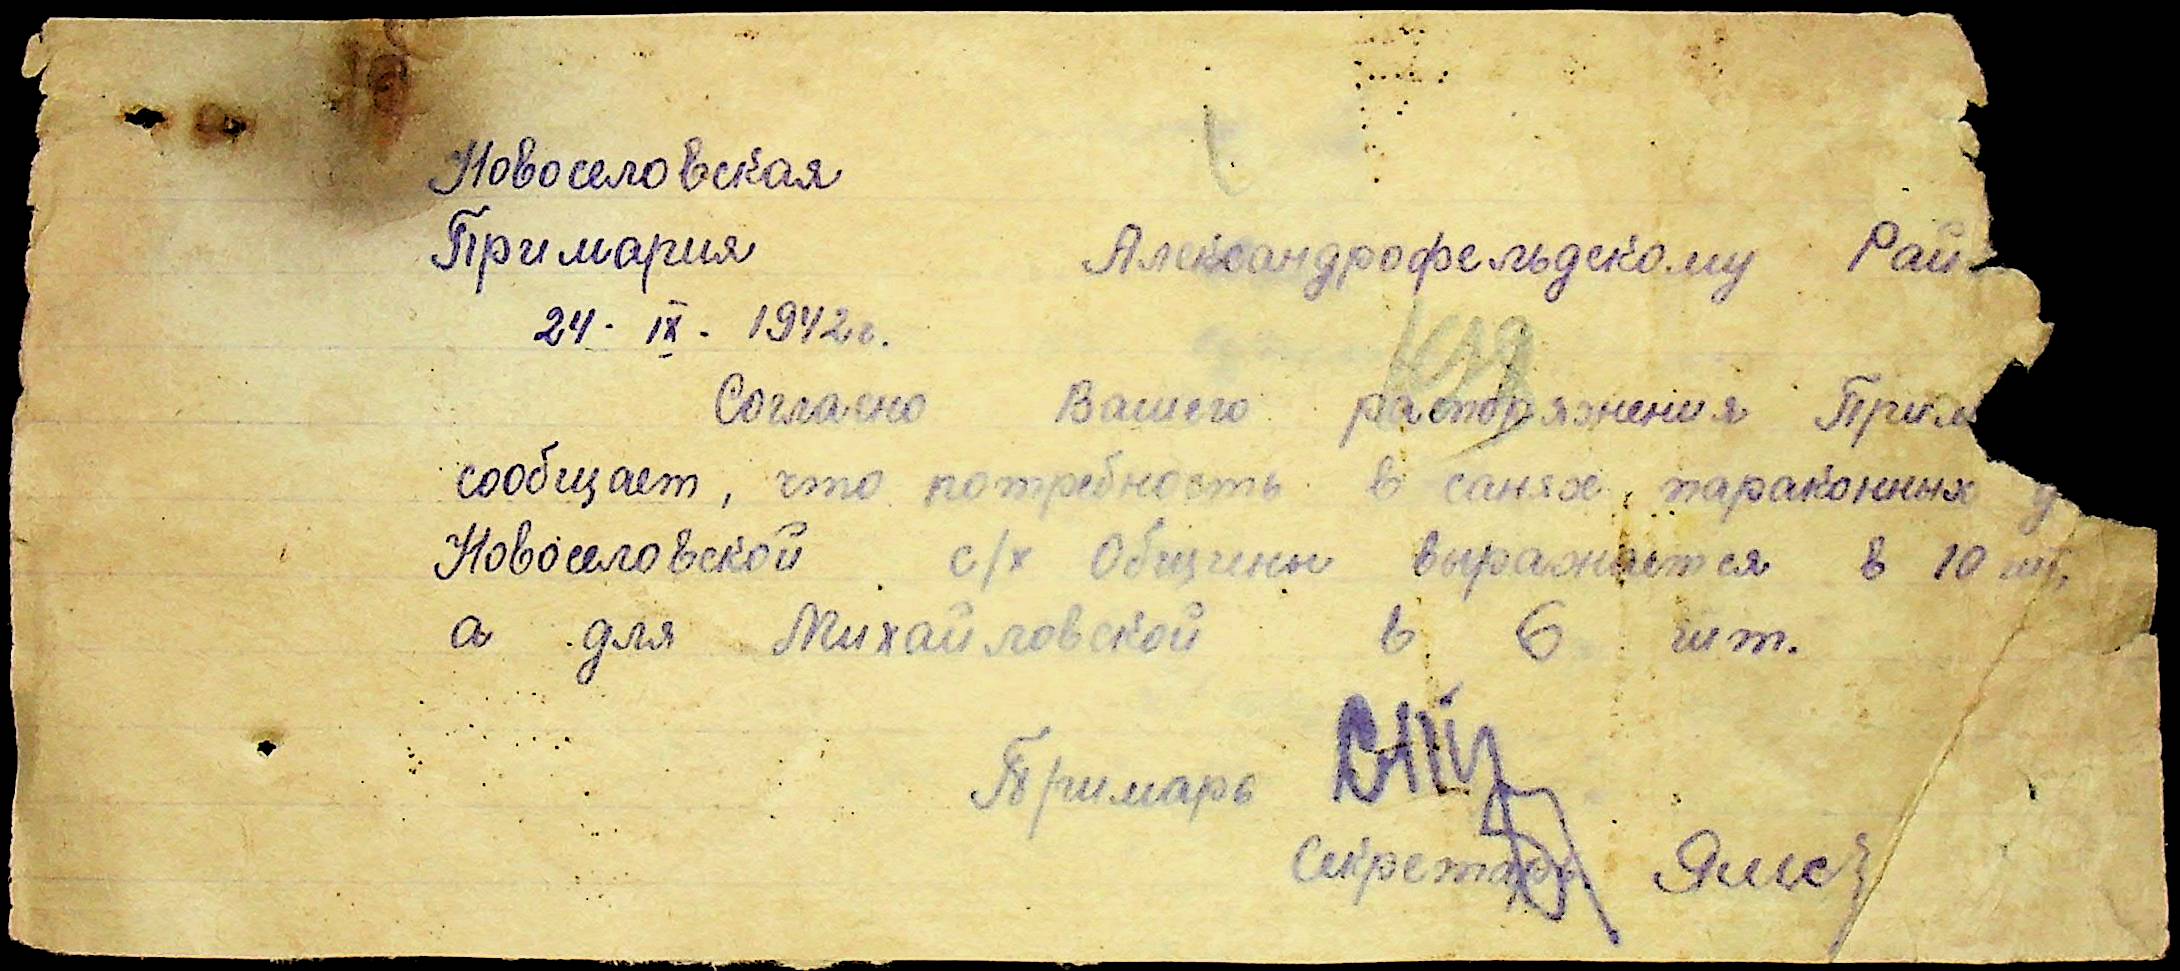 Новоселовская
Примария
Александрофельдскому Рай
24. IX. 1942 г.
Согласно Вашего распоряжения Прим
сообщает, что потребность в санях параконных д
Новоселовской с/х Общины выражается в 10 шт,
а для Михайловской в 6 шт.
Примарь
Секретарь